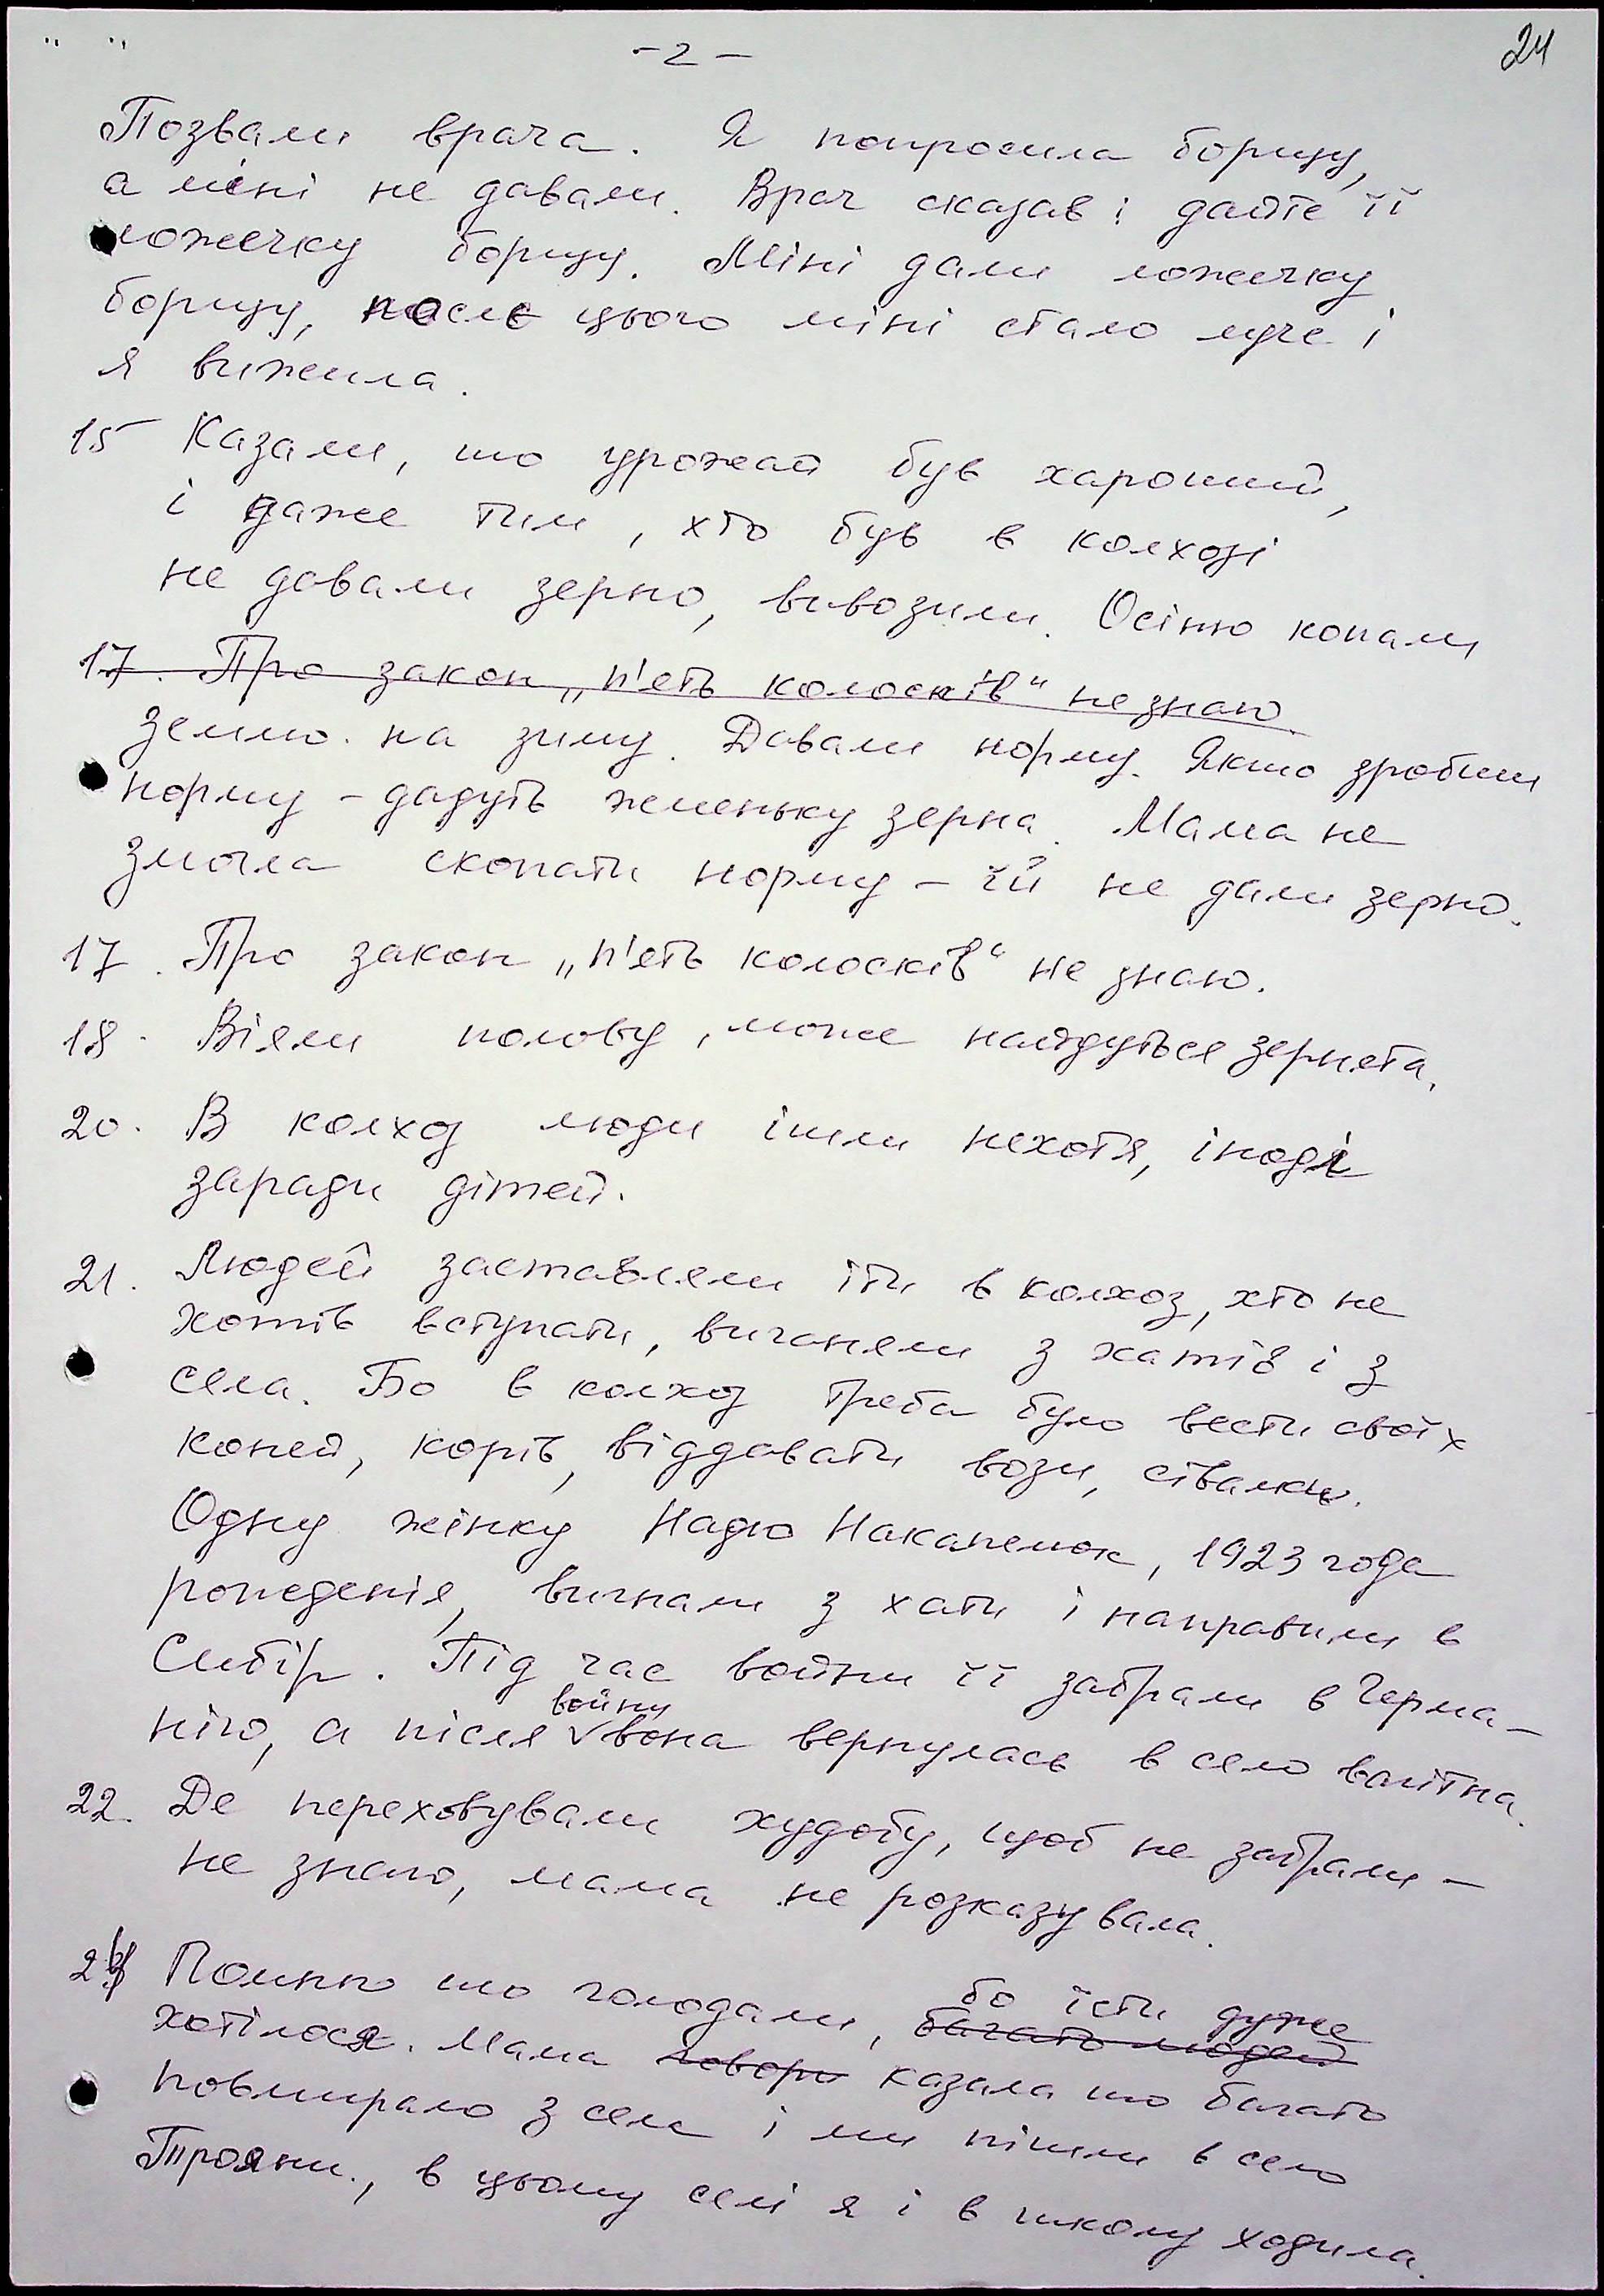 - 2 -
24
Позвали врача. Я попросила борщу,
а міні не давали. Врач сказав: дайте її
ложечку борщу. Міні дали ложечку
борщу, после цього міні стало луче і
я вижила.
15 Казали, шо урожай був хароший,
і даже тим, хто був в колхозі
не давали зерно, вивозили. Осінню копали
17. Про закон „п'ять колосків“ не знаю
землю на зиму. Давали норму. Якшо зробиш
норму - дадуть жменьку зерна. Мама не
змогла скопати норму - їй не дали зерно.
17. Про закон „п'ять колосків“ не знаю.
18. Віяли полову, може найдуться зернята.
20. В колхоз люди ішли нехотя, іноді
заради дітей.
21. Людей заставляли іти в колхоз, хто не
хотів вступати, виганяли з хатів і з
села. Бо в колхоз треба було вести своїх
коней, корів, віддавати вози, сівалки.
Одну жінку Надю Накапелюк, 1923 года
рождения, вигнали з хати і направили в
Сибір. Під час войни її забрали в Герма-
нію, а після войни вона вернулась в село вагітна.
22. Де переховували худобу, щоб не забрали -
не знаю, мама не розказувала.
24 Помню шо голодали, багато людей бо їсти дуже
хотілося. Мама говори казала шо багато
повмирало з села і ми пішли в село
Трояни, в цьому селі я і в школу ходила.